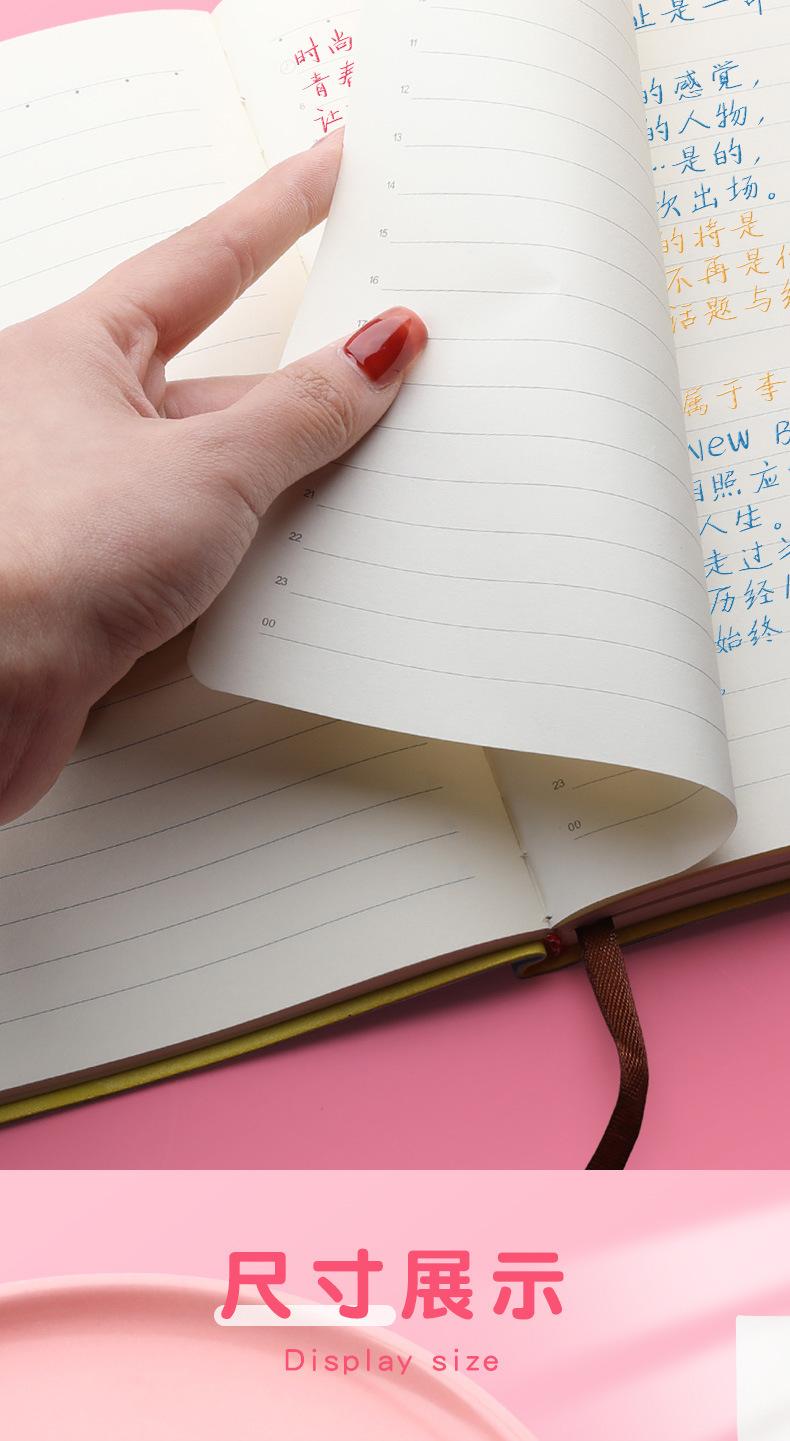 时尚
青春
让
11
12
13
14
15
16
17
21
22
23
00
23
00
让是一
的感觉，
的人物，
…是的，
次出场。
的将是
不再是
话题与
属于李
New B
照应
人生。
走过
历经
始终
。
尺寸展示
Display size